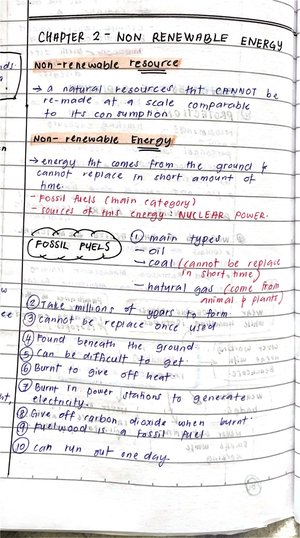 CHAPTER 2 - NON RENEWABLE ENERGY
Non-renewable resource
→ a natural resources tht CANNOT be
re-made at a scale comparable
to its consumption
Non-renewable Energy
→ energy tht comes from the ground &
cannot replace in short amount of
time.
- Fossil fuels (main category)
- sources of this energy: NUCLEAR POWER.
FOSSIL FUELS
① main types
- oil
- coal (cannot be replace
in short time)
- natural gas (come from
animal & plants)
② Take millions of years to form
③ cannot be replace once used
④ Found beneath the ground
⑤ Can be difficult to get.
⑥ Burnt to give off heat.
⑦ Burnt in power stations to generate
electricity.
⑧ Give off carbon dioxide when burnt.
⑨ Fuelwood is a Fossil fuel
⑩ can run out one day.